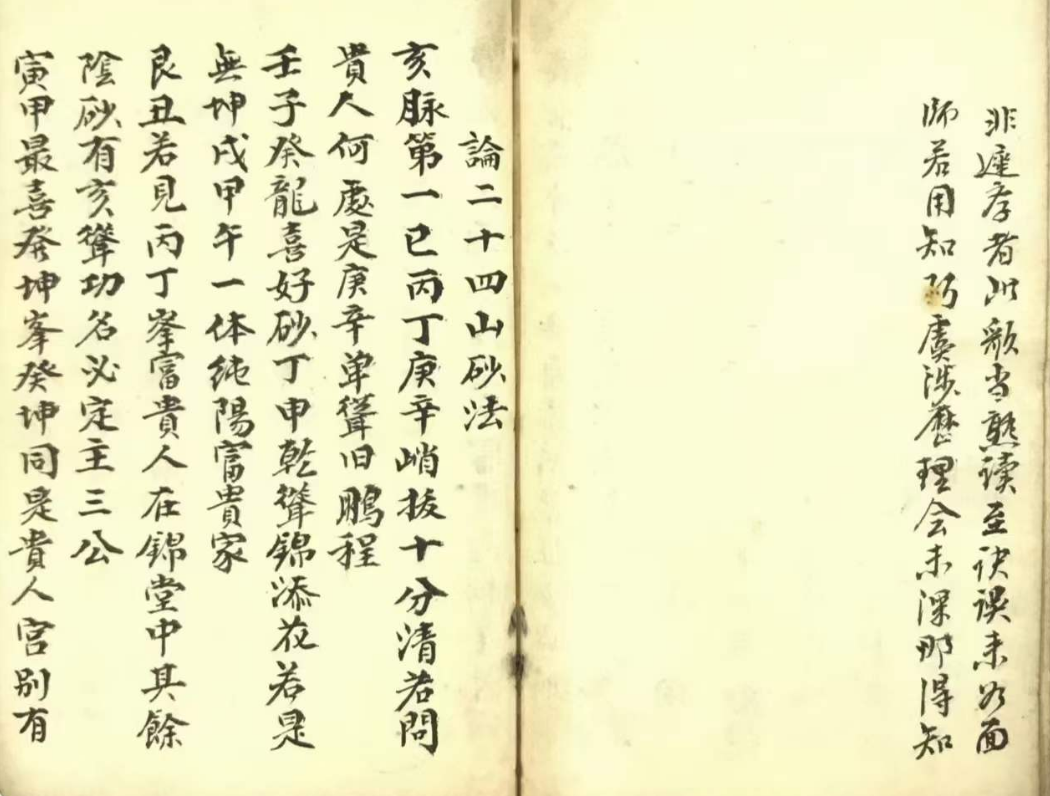 非遲存者此歌當熟读至诀誤未必面
师若用知巧處涉歷理会未深那得知
論二十四山砂法
亥脉第一巳丙丁庚辛峭拔十分清若問
貴人何處是庚辛单聳旧鵬程
壬子癸龍喜好砂丁申乾聳錦添花若是
無坤戌甲午一体纯陽富貴家
艮丑若見丙丁峯富貴人在錦堂中其餘
陰砂有亥聳功名必定主三公
寅甲最喜癸坤峯癸坤同是貴人宫别有